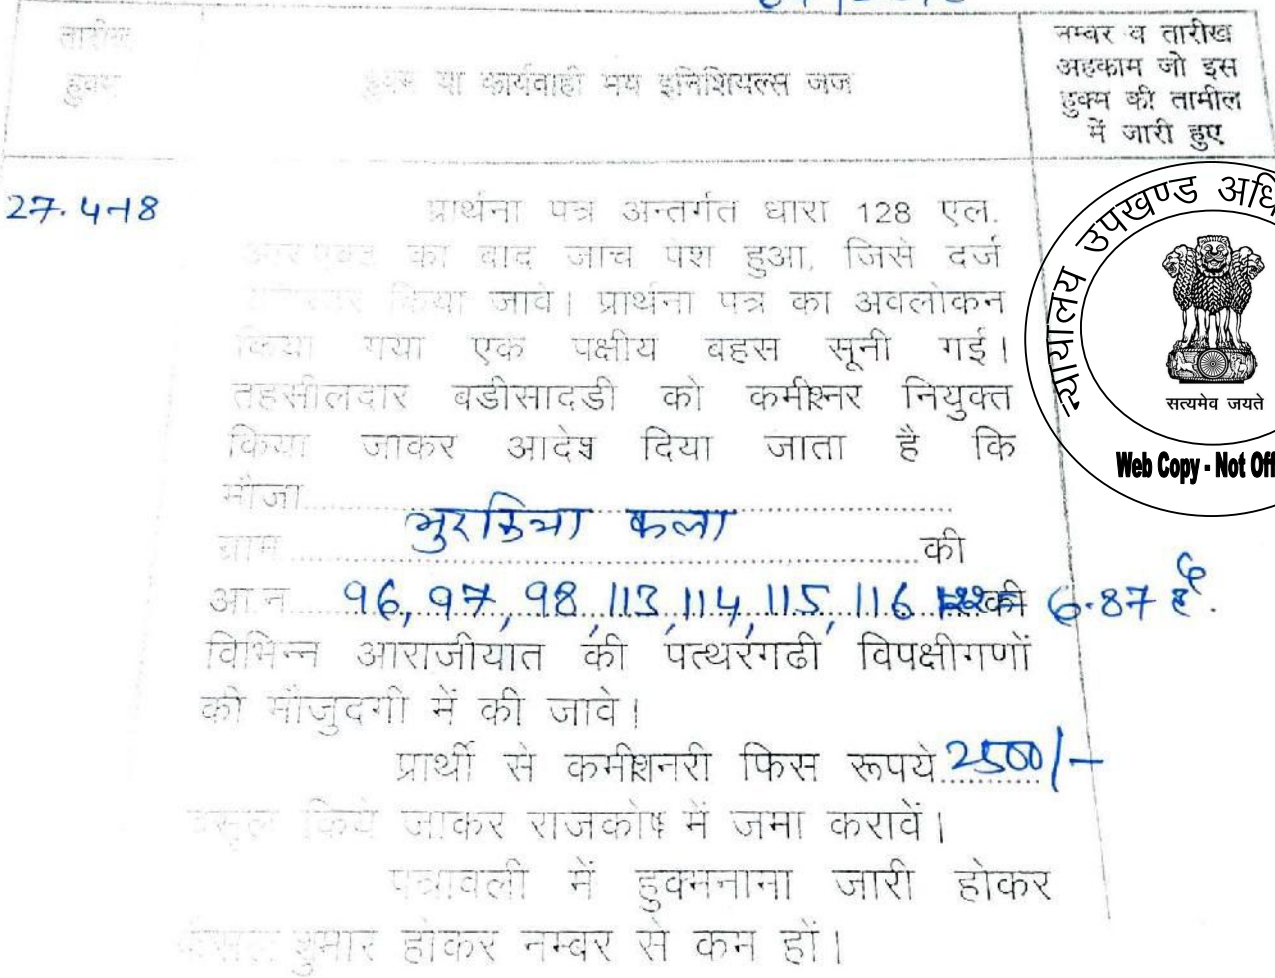 तारीख
हुक्म
हुक्म या कार्यवाही मय इनिशियल्स जज
नम्बर व तारीख
अहकाम जो इस
हुक्म की तामील
में जारी हुए
27.4-18
प्रार्थना पत्र अन्तर्गत धारा 128 एल.
का बाद जाच पेश हुआ, जिसे दर्ज
किया जावे। प्रार्थना पत्र का अवलोकन
किया गया एक पक्षीय बहस सूनी गई।
तहसीलदार बडीसादडी को कमीश्नर नियुक्त
किया जाकर आदेश दिया जाता है कि
मौजा
ग्राम कला की
आ.न. 96, 97, 98, 113, 114, 115, 116 की 6.87 है.
विभिन्न आराजीयात की पत्थरगढी विपक्षीगणों
की मौजुदगी में की जावे।
प्रार्थी से कमीशनरी फिस रूपये 2500/-
वसूल किये जाकर राजकोष में जमा करावें।
पत्रावली में हुक्मनामा जारी होकर
फैसल शुमार होकर नम्बर से कम हों।
न्यायालय उपखण्ड अधि
सत्यमेव जयते
Web Copy - Not Off